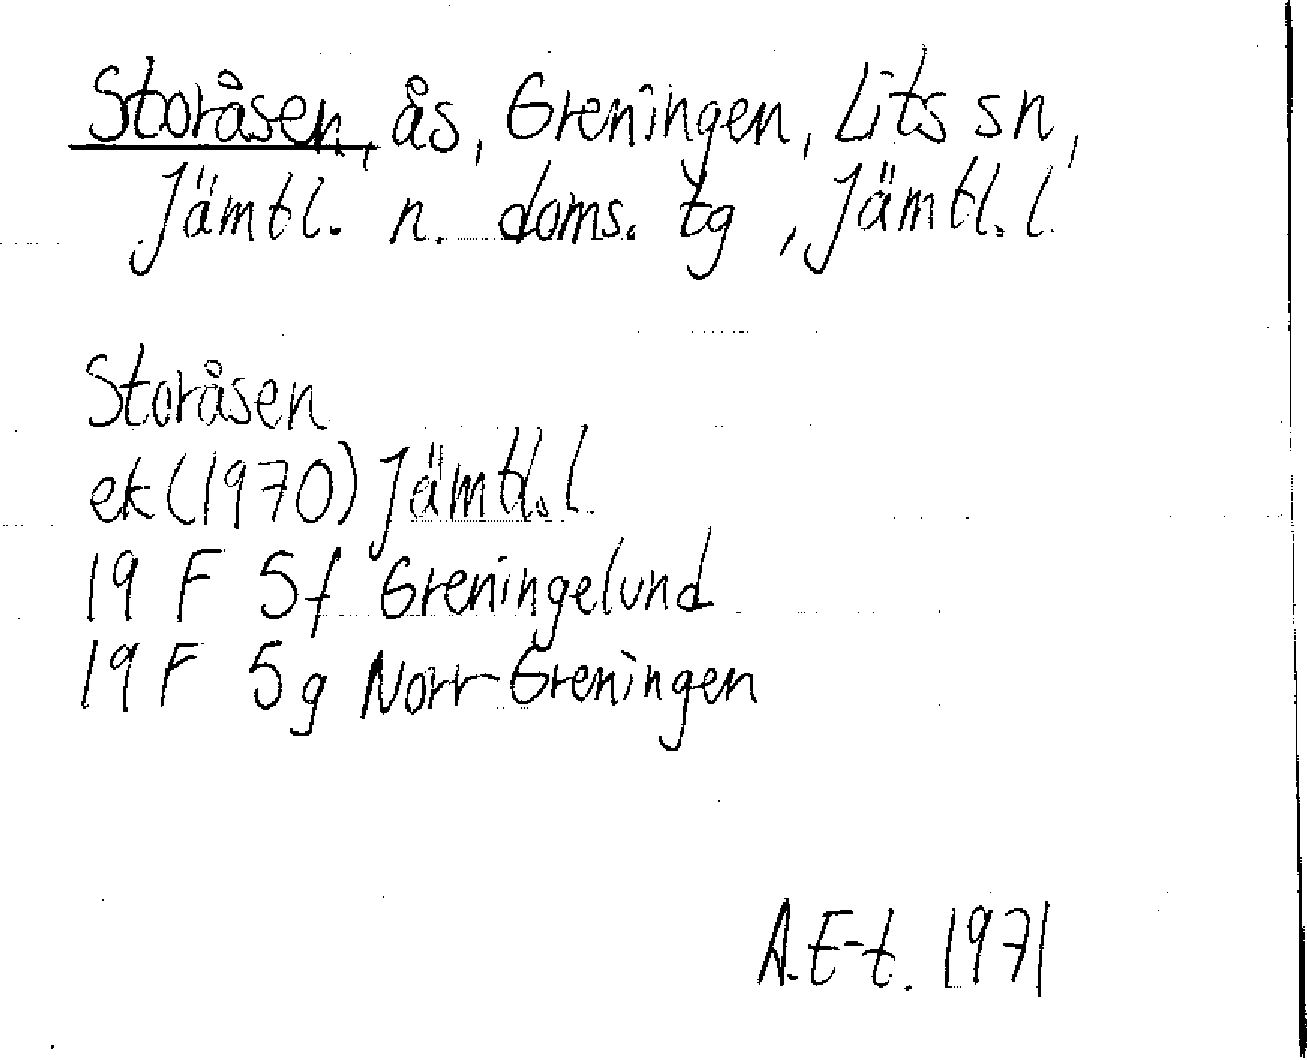 Storåsen, ås, Greningen, Lits sn,
Jämtl. n. doms. tg, Jämtl. l.
Storåsen
ek (1970) Jämtl. l.
19 F 5f Greningelund
19 F 5g Norr-Greningen
A.E-t. 1971